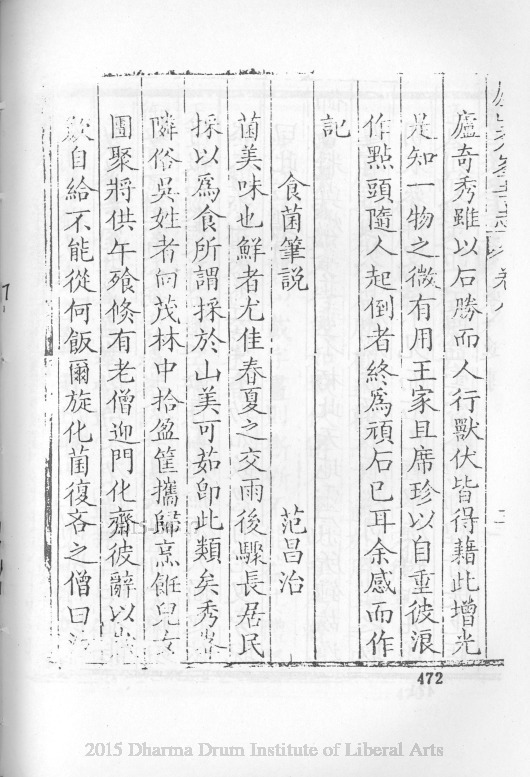 廬奇秀雖以石勝而人行獸伏皆得藉此增光
是知一物之微有用王家且席珍以自重彼浪
作點頭隨人起倒者終為頑石已耳余感而作
記
食菌筆説 范昌治
菌美味也鮮者尤佳春夏之交雨後驟長居民
採以爲食所謂採於山美可茹卽此類矣秀峯
隣俗吳姓者向茂林中拾盈筐攜歸烹飪兒女
團聚將供午飱倐有老僧迎門化齋彼辭以
自給不能從何飯爾旋化菌復吝之僧曰
472
2015 Dharma Drum Institute of Liberal Arts